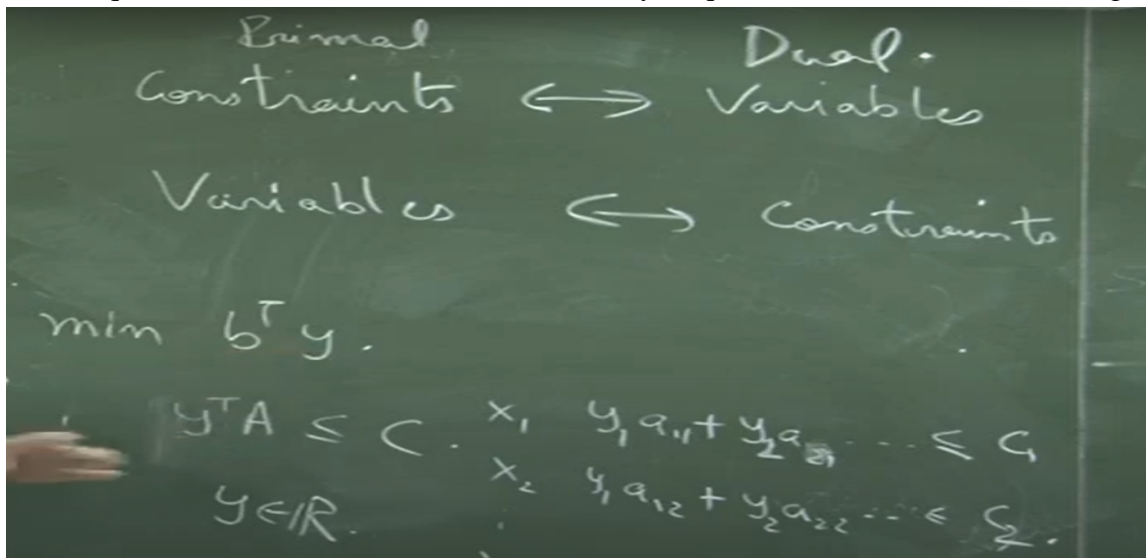 Primal Dual.
Constraints ⟷ Variables
Variables ⟷ Constraints
min bᵀy.
yᵀA ≤ C. x₁ y₁a₁₁ + y₂a₂₁ ... ≤ C₁
y ∈ ℝ. x₂ y₁a₁₂ + y₂a₂₂ ... ≤ C₂.